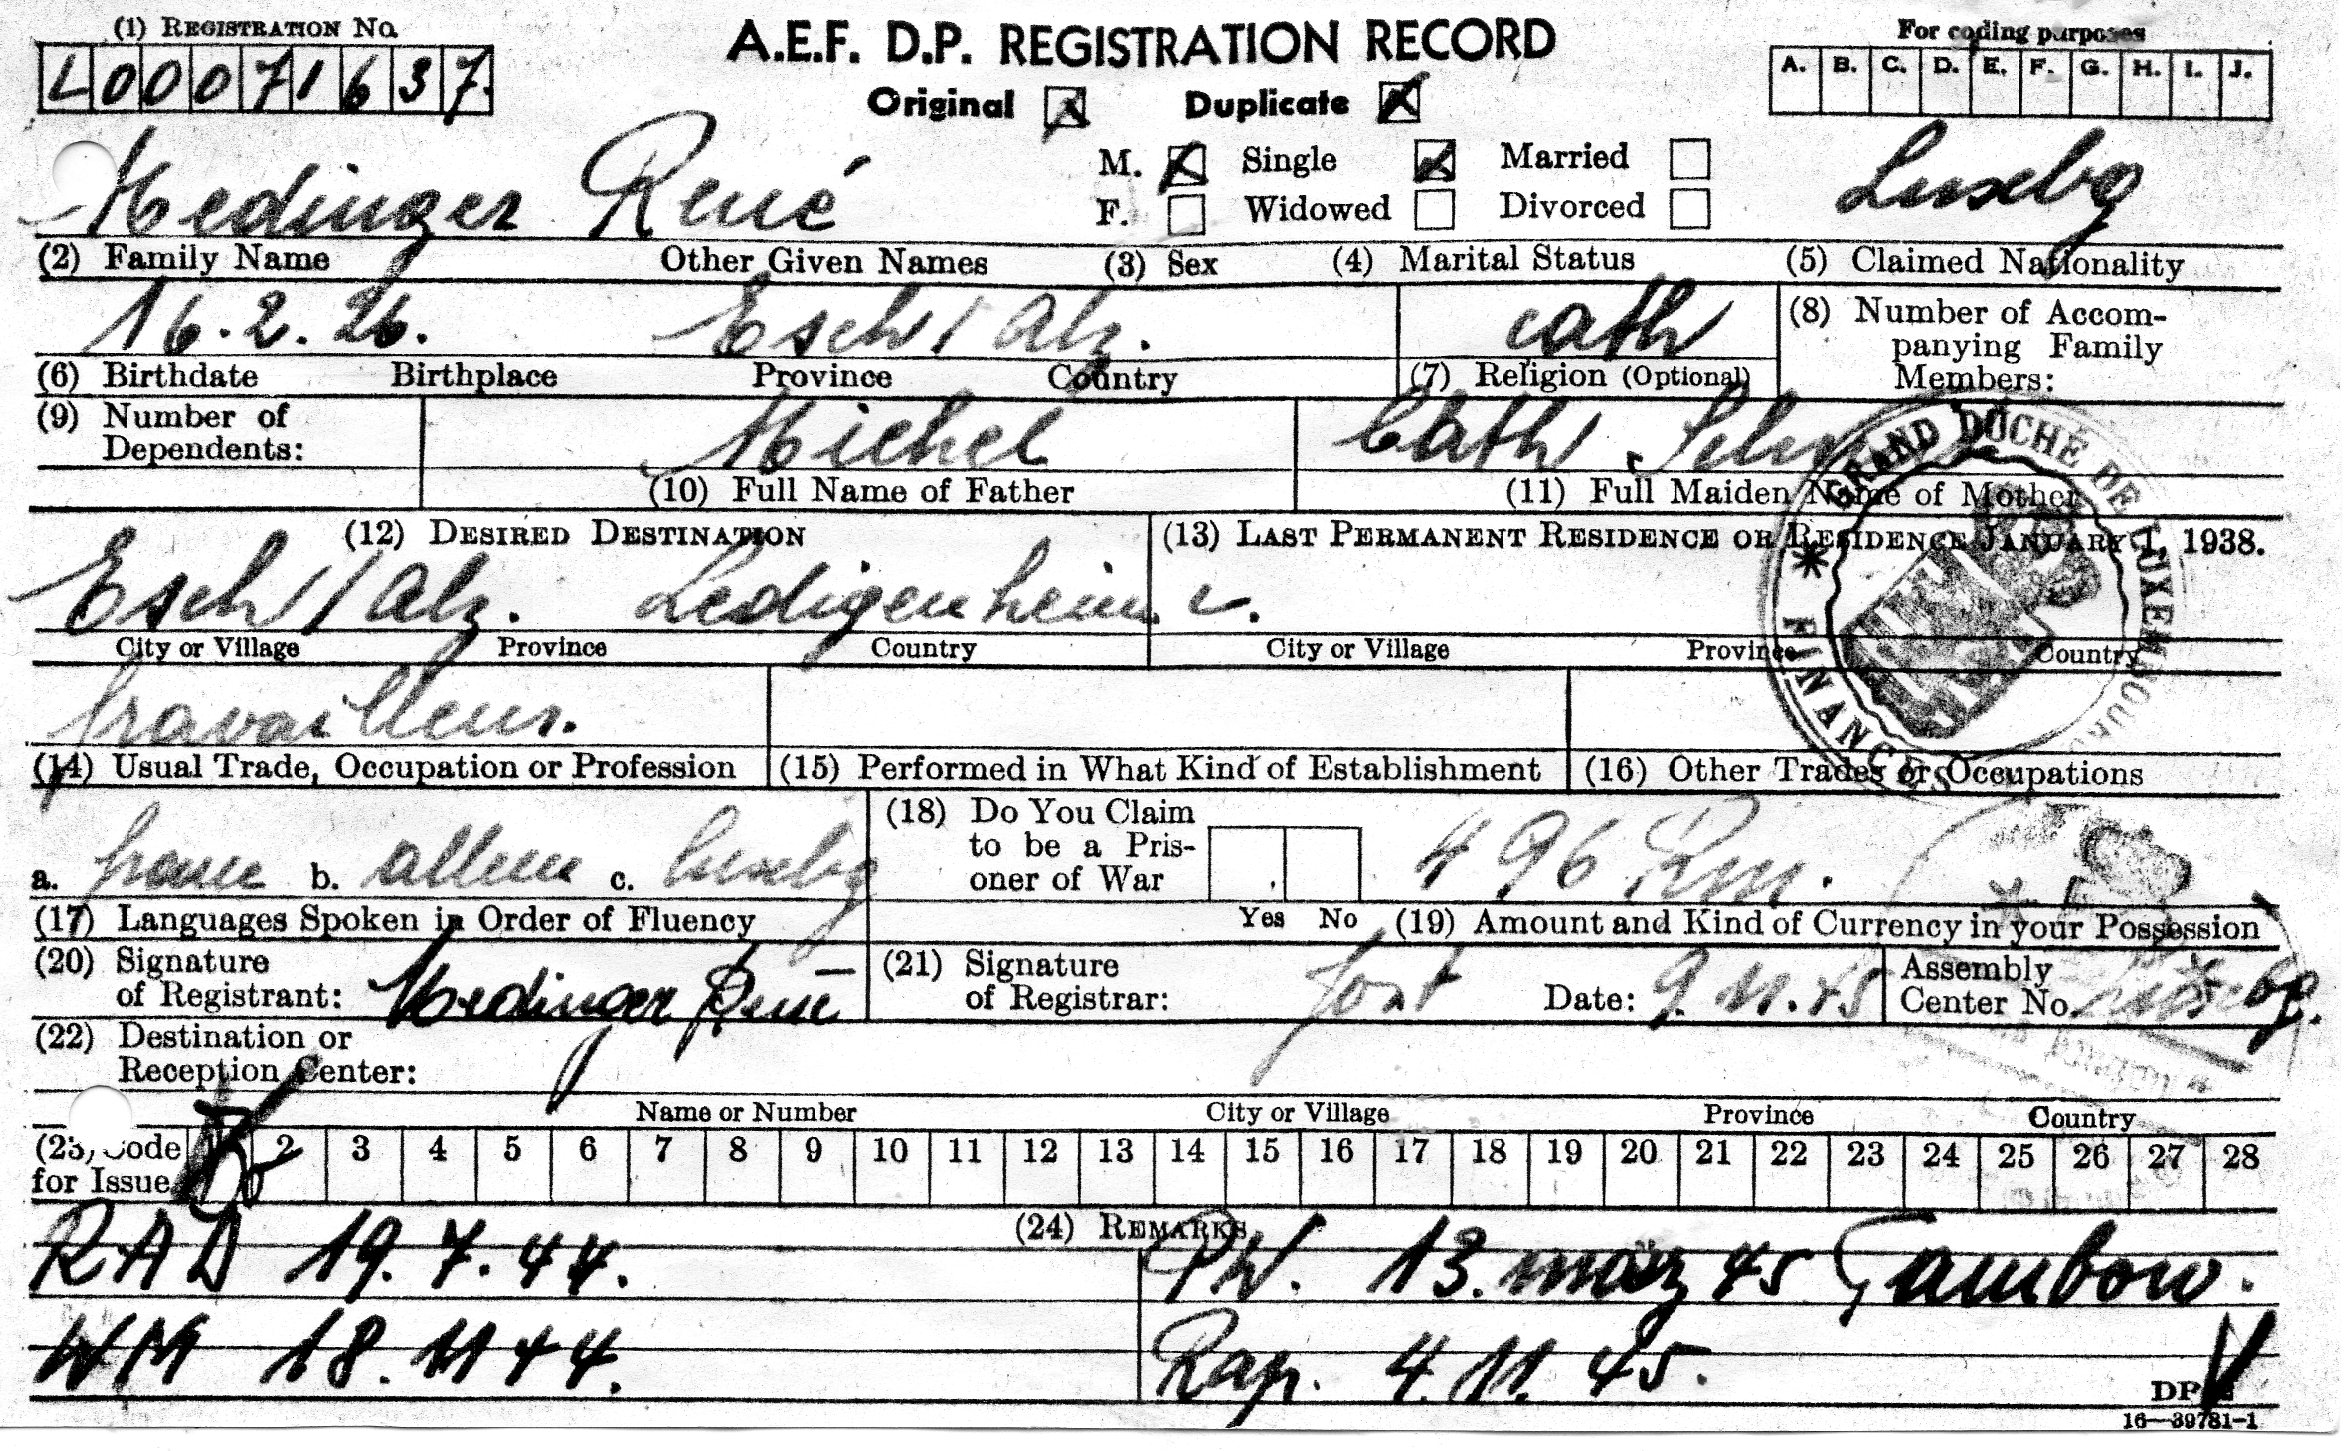 (1) REGISTRATION No.
L00071637.
A.E.F. D.P. REGISTRATION RECORD
Original Duplicate
For coding purposes
A. B. C. D. E. F. G. H. I. J.
Medinger René
M. Single Married
F. Widowed Divorced
Luxbg
(2) Family Name Other Given Names (3) Sex (4) Marital Status (5) Claimed Nationality
16.2.26. Esch/Alz. cath
(6) Birthdate Birthplace Province Country (7) Religion (Optional)
(8) Number of Accom-
panying Family
Members:
(9) Number of
Dependents:
Michel
(10) Full Name of Father
Cath.
(11) Full Maiden Name of Mother
GRAND DUCHÉ DE LUXEMBOURG
* FINANCES
(12) DESIRED DESTINATION (13) LAST PERMANENT RESIDENCE OR RESIDENCE JANUARY 1, 1938.
Esch/Alz. Ledigenheim
City or Village Province Country City or Village Province Country
travailleur.
(14) Usual Trade, Occupation or Profession (15) Performed in What Kind of Establishment (16) Other Trades or Occupations
a. b. c. luxbg
(17) Languages Spoken in Order of Fluency
(18) Do You Claim
to be a Pris-
oner of War
Yes No
496 Rm.
(19) Amount and Kind of Currency in your Possession
(20) Signature
of Registrant: Medinger René
(21) Signature
of Registrar: Jost Date: 9.11.45
Assembly
Center No. Luxbg.
(22) Destination or
Reception Center:
Name or Number City or Village Province Country
(23) Code
for Issue
1 2 3 4 5 6 7 8 9 10 11 12 13 14 15 16 17 18 19 20 21 22 23 24 25 26 27 28
(24) REMARKS
RAD 19.7.44. PW. 13. märz 45 Tambow.
WM 18.11 44. Rap. 4.11.45.
DP-2
16—39781-1